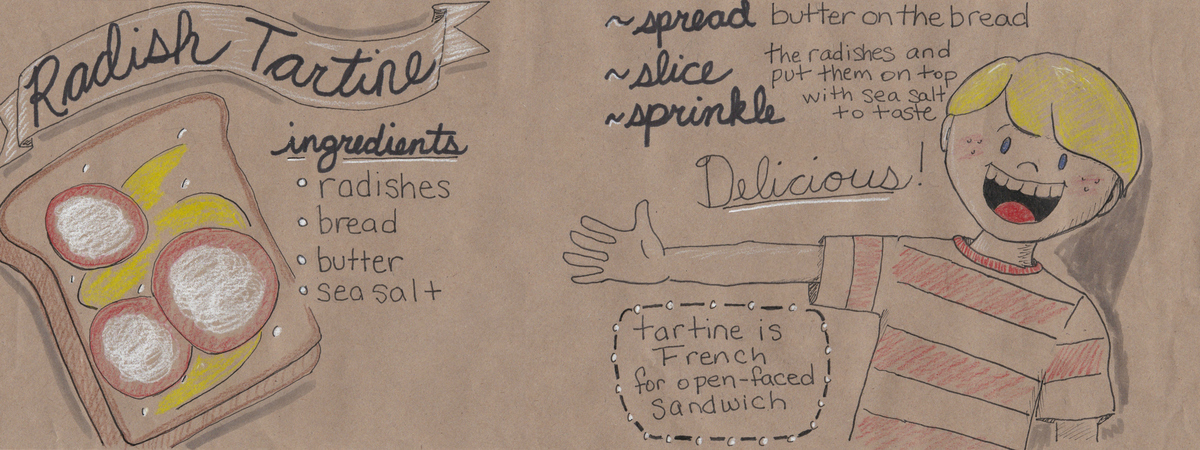 Radish Tartine
ingredients
• radishes
• bread
• butter
• sea salt
~spread butter on the bread
~slice the radishes and
put them on top
~sprinkle with sea salt
to taste
Delicious!
tartine is
French
for open-faced
sandwich